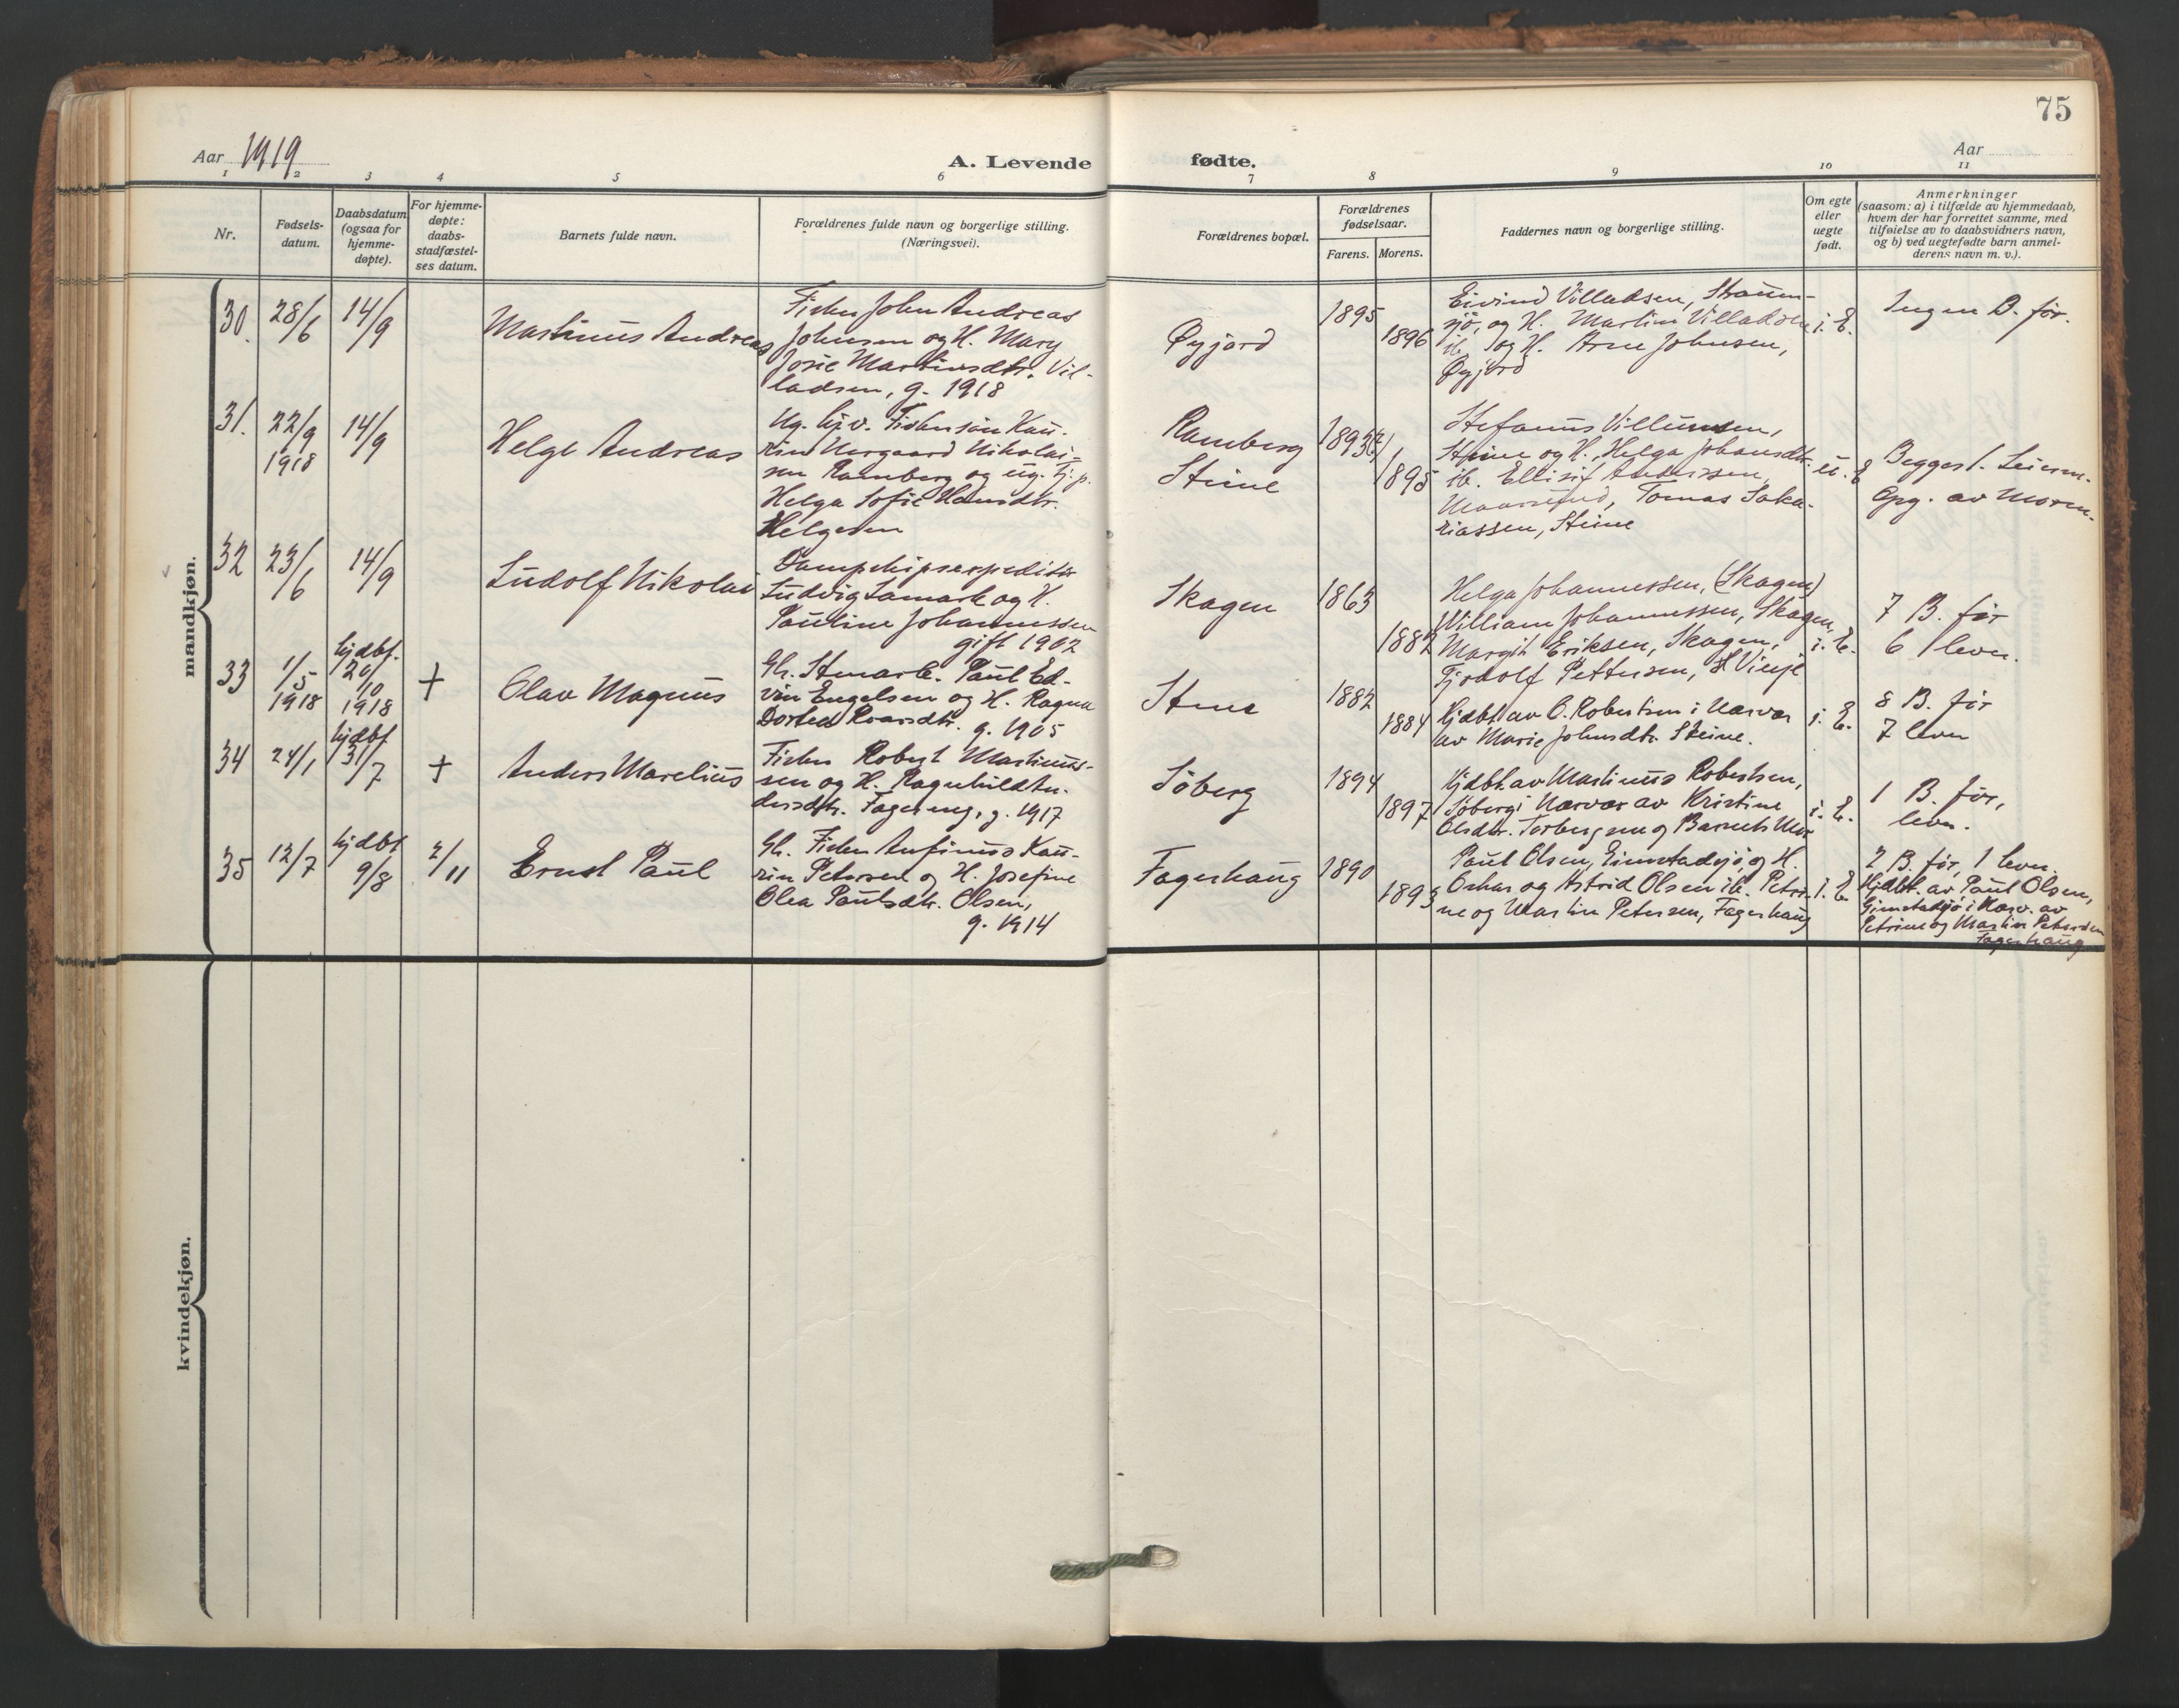 75
Aar 1919
A. Levende fødte.
Aar
1 2 3 4 5 6 7 8 9 10 11
Nr.
Fødsels-
datum.
Daabsdatum
(ogsaa for
hjemme-
døpte).
For hjemme-
døpte:
daabs-
stadfæstel-
ses datum.
Barnets fulde navn.
Forældrenes fulde navn og borgerlige stilling.
(Næringsvei).
Forældrenes bopæl.
Forældrenes
fødselsaar.
Farens. Morens.
Faddernes navn og borgerlige stilling.
Om egte
eller
uegte
født.
Anmerkninger
(saasom: a) i tilfælde av hjemmedaab,
hvem der har forrettet samme, med
tilføielse av to daabsvidners navn,
og b) ved uegtefødte barn anmel-
derens navn m. v.).
mandkjøn.
30. 28/6 14/9
Martinus Andreas
Fisker John Andreas
Johnsen og H. Mary
Josie Martinsdtr. Vil-
ladsen, g. 1918
Øyjord
1895
1896
Eivind Villadsen, Straum-
sjø, og H. Martin Villadsen
ib. og H. Arne Johnsen,
Øyjord
i. E.
Ingen B. før.
31. 22/9 1918 14/9
Helge Andreas
Ug. Gjv. Fisker søn Kau-
rin Norgaard Nikolai-
sen Ramberg og ug. Tj. p.
Helga Sofie Hansdtr.
Helgesen
Ramberg
Steine
1893
1895
Stefanus Villumsen,
Steine og H., Helga Johansdtr.
ib. Ellisif Andersen,
Tomas Saka-
riassen, Steine
u. E
Begges 1. Leierm.
Opg. av Moren.
32 23/6 14/9
Ludolf Nikolai
Dampskipsexpeditør
Ludvig Lamark og H.
Pauline Johannessen
gift 1902
Skagen
1863
1882
Helga Johannessen, (Skagen)
William Johannessen, Skagen,
Margit Eriksen, Skagen,
Fjodolf Pettersen, Vinje
i. E.
7 B. før
6 lever.
33 1/5 1918 hjdbt. 20/10 1918 +
Olav Magnus
Gh. Stenarb. Paul Ed-
vin Engelsen og H. Ragna
Dortea Roarsdtr. g. 1905
Steine
1882
1884
Hjdbt. av O. Robertsen i Nærvær
av Marie Johnsdtr. Steine.
i. E.
8 B. før
7 lever
34 24/1 hjdbt 31/7 +
Anders Marelius
Fisker Robert Martinus-
sen og H. Ragnhild An-
dersdtr. Fagereng, g. 1917
Søberg
1894
1897
Hjdbt. av Martinus Robertsen,
Søberg i Nærvær av Kristine
Olsdtr. Torbergsen og Barnets Mor
i. E.
1 B. før,
lever.
35 12/7 hjdbt 9/8 2/11
Ernst Paul
Gh. Fisker Anfinus Kau-
rin Petersen og H. Josefine
Olea Paulsdtr. Olsen,
g. 1914
Fagerhaug
1890
1893
Paul Olsen, Eimstadsjø, og H.
Oskar og Astrid Olsen ib. Petri-
ne og Martin Petersen, Fagerhaug
i. E.
2 B. før, 1 lever.
Hjdbt. av Paul Olsen,
Eimstadsjø i Nærv. av
Petrine og Martin Petersen
Fagerhaug
kvindekjøn.